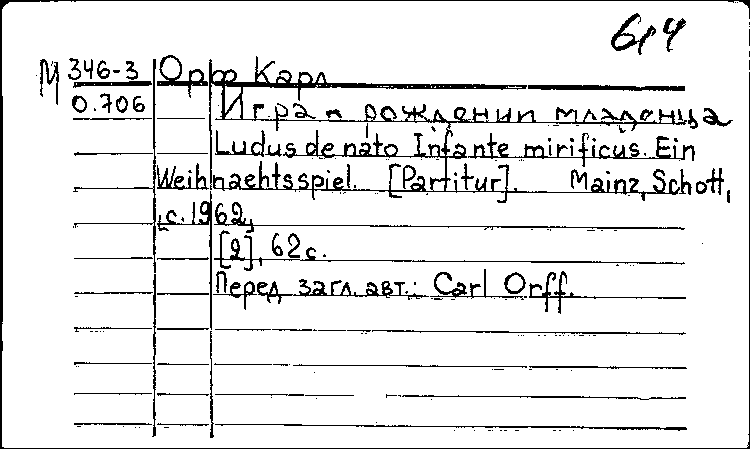 6,4
М 346-3 Орф Карл
0.706 Игра о рождении младенца
Ludus de nato Infante mirificus. Ein
Weihnachtsspiel. [Partitur]. Mainz, Schott,
[с. 1962]
[2], 62 с.
Перед загл. авт.: Carl Orff.